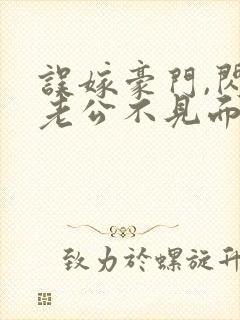 誤嫁豪門,閃
老公不見面
致力於螺旋升